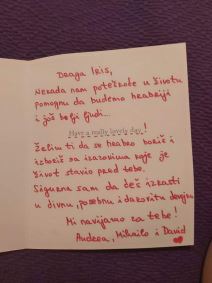 Draga Iris,
Nekada nam poteškoće u životu
pomognu da budemo hrabriji
i još bolji ljudi...
Have a really lovely day!
Želim ti da se hrabro boriš i
izboriš sa izazovima koje je
život stavio pred tebe.
Sigurna sam da ćeš izrasti
u divnu, posebnu i darovitu devojku
Mi navijamo za tebe!
Andrea, Mihailo i David